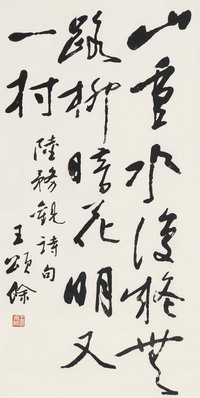 山重水復疑無
路柳暗花明又
一村
陸務觀詩句
王頌餘